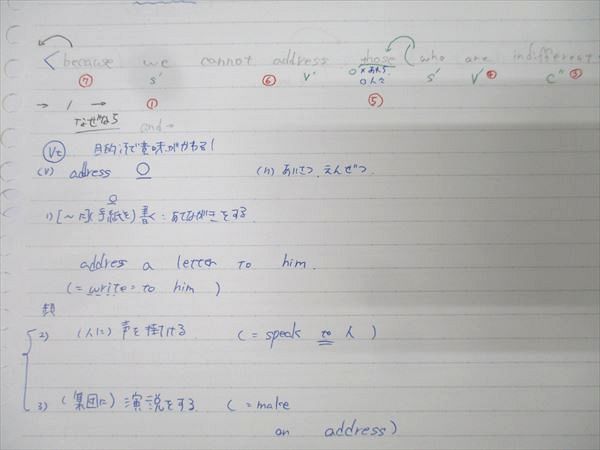 because we cannot address those (who are indifferent
⑦ S' ⑥ V' ○×あんな S' V' ④ C" ③
○人々
→ / → ① ⑤
なぜなら and→
Vt 目的語で意味がかわる!
(v) address ○ (n) あいさつ、えんぜつ
1) [~に](手紙を)書く:あてながきをする.
addres a letter to him.
(= write to him )
類
2) (人に) 声を掛ける (= speak to 人 )
3) (集団に) 演説をする (= make
an address)